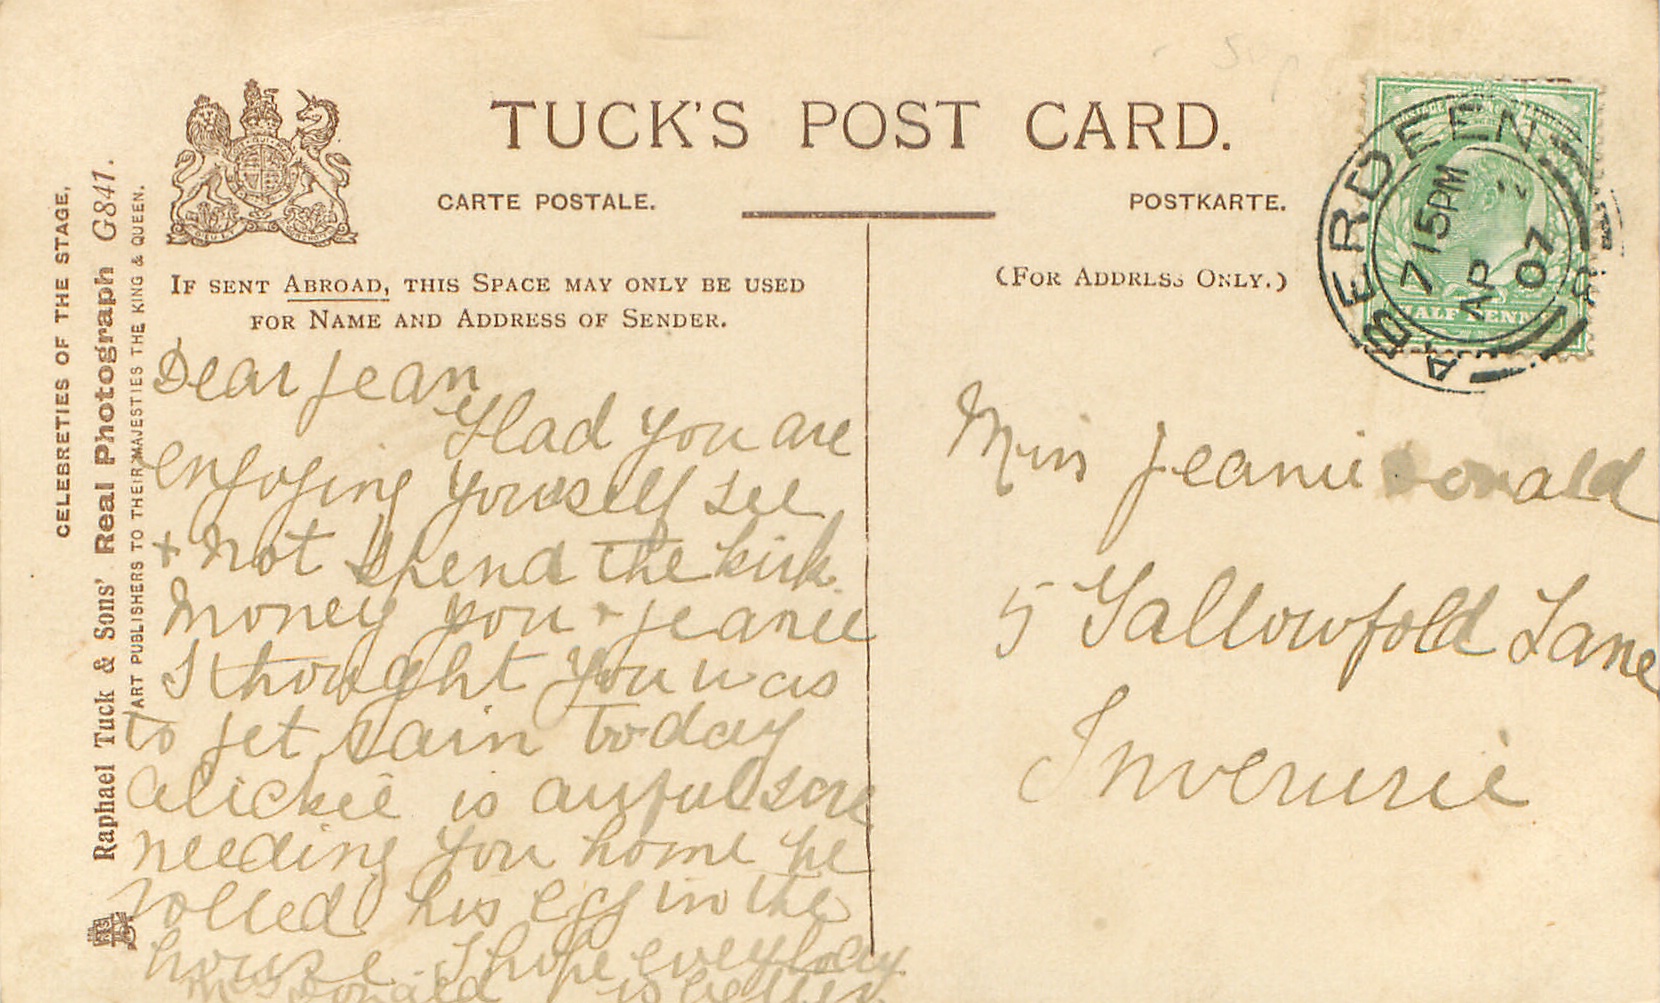 TUCK'S POST CARD.
CARTE POSTALE.
POSTKARTE.
IF SENT ABROAD, THIS SPACE MAY ONLY BE USED
FOR NAME AND ADDRESS OF SENDER.
(FOR ADDRESS ONLY.)
CELEBRETIES OF THE STAGE.
Raphael Tuck & Sons' Real Photograph G841.
ART PUBLISHERS TO THEIR MAJESTIES THE KING & QUEEN.
ABERDEEN
7 15PM
AP 2
07
HALF PENNY
Dear Jean
Glad you are
enjoying yourself see
+ not spend the kirk
money you + Jeanie
I thought you was
to get rain today
Alickie is awful sore
needing you home he
rolled his egg in the
house. I hope everybody
Mrs Donald is better
Miss Jeanie Donald
5 Gallowfold Lane
Inverurie